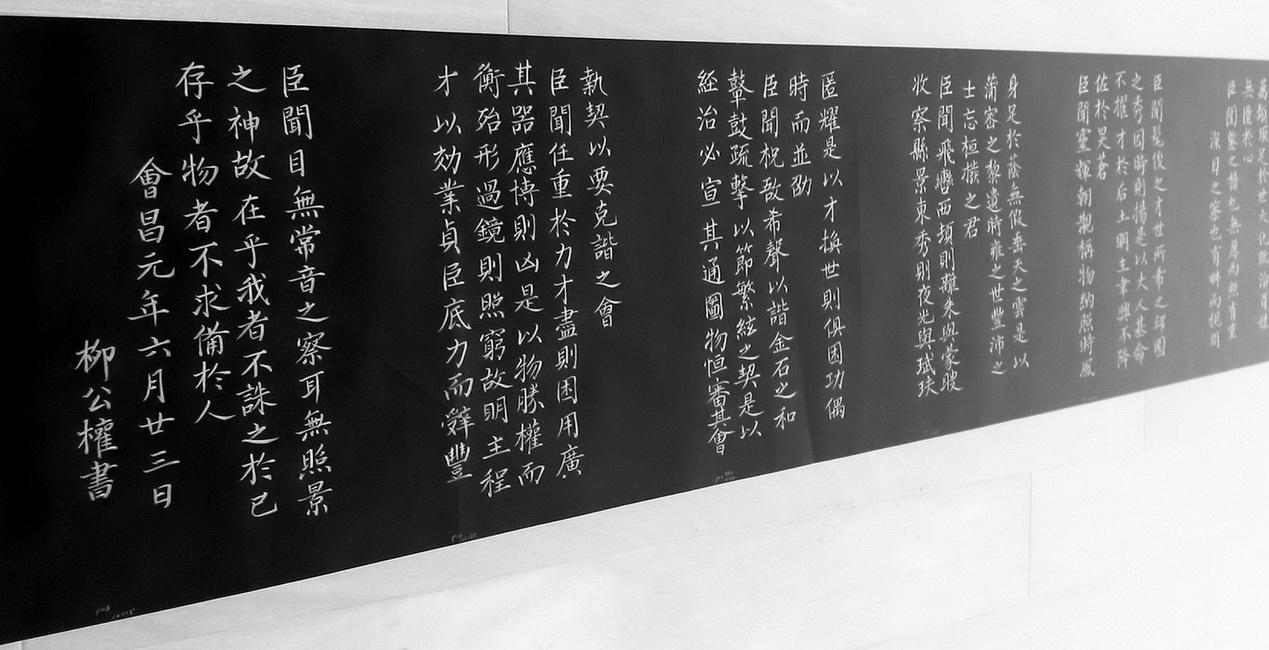 萬類取足於世大化既洽百姓
無匱於心
臣聞鑒之積也無厚而照有重
目之察也有畔而視周
臣聞髦俊之才世所希乏邱園
之秀因時則揚是以大人基命
不擢才於后土明主聿興不降
佐於昊蒼
臣聞靈輝朝覯稱物納照時風
身足於蔭無假垂天之雲是以
蒲密之黎遺時雍之世豐沛之
士忘桓撥之君
臣聞飛轡西頓則離朱與蒙瞍
收察縣景東秀則夜光與珷玞
匿耀是以才換世則俱困功偶
時而並劭
臣聞柷敔希聲以諧金石之和
鼙鼓疏擊以節繁絃之契是以
経治必宣其通圖物恒審其會
執契以要克諧之會
臣聞任重於力才盡則困用廣
其器應博則凶是以物勝權而
衡殆形過鏡則照窮故明主程
才以効業貞臣底力而辤豐
臣聞目無常音之察耳無照景
之神故在乎我者不誅之於己
存乎物者不求備於人
會昌元年六月廿三日
柳公權書